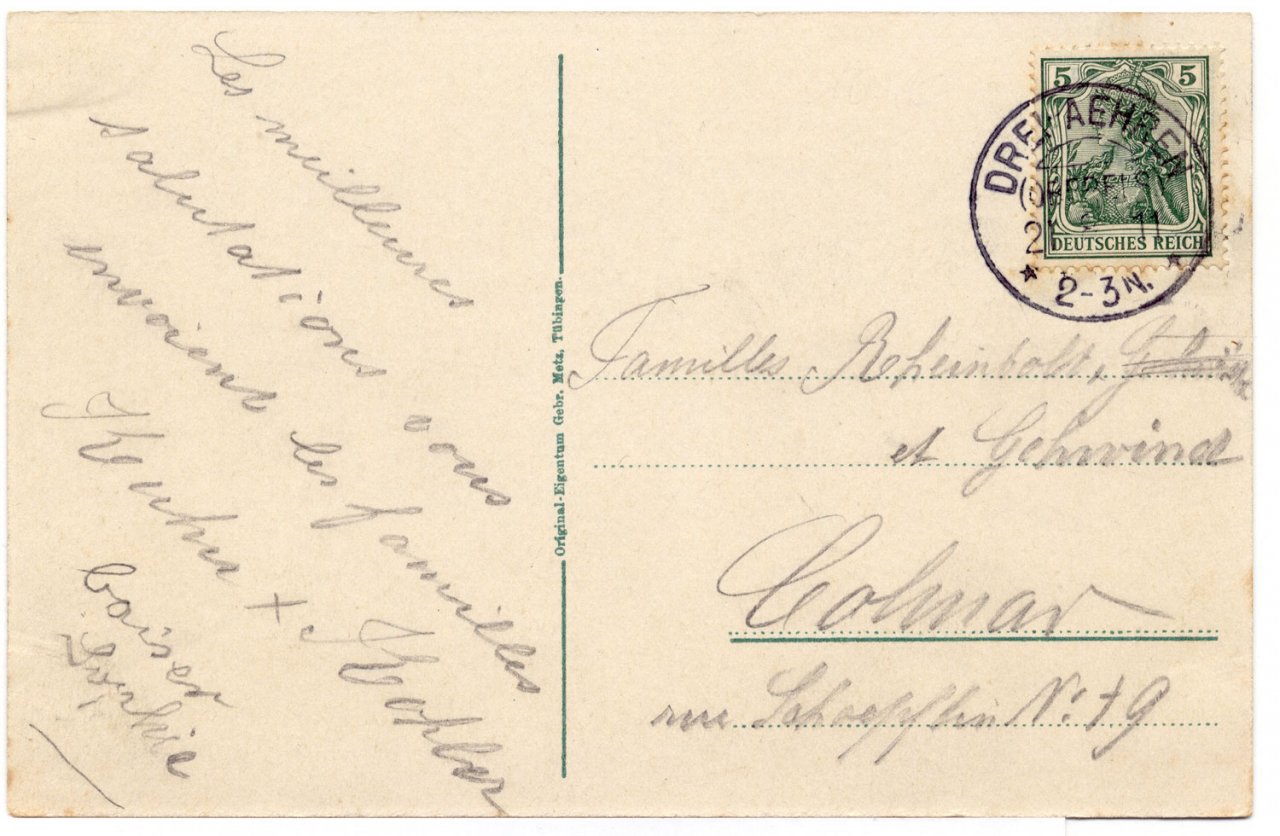 Les meilleures
salutations vous
envoient les familles
+ Kohler
baiser
Sophie
Original-Eigentum Gebr. Metz, Tübingen.
5 5
DEUTSCHES REICH
DREI AEHREN
11
2-3 N.
Familles Reheinbold,
et Gehwind
Colmar
rue Schoepflin No 19